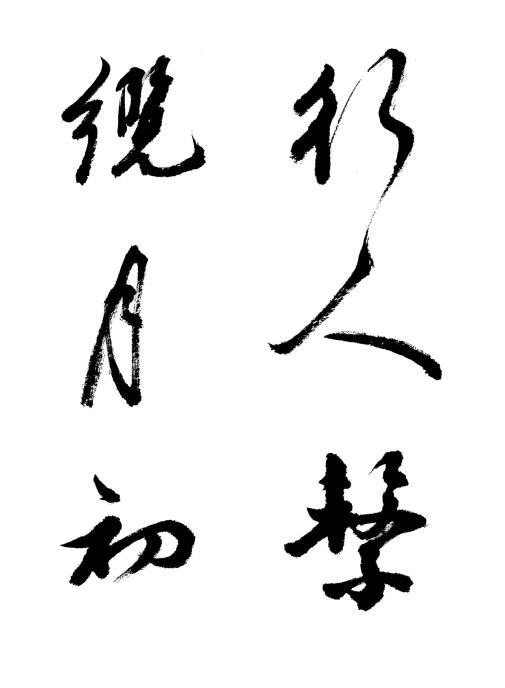 行人繫
纜月初